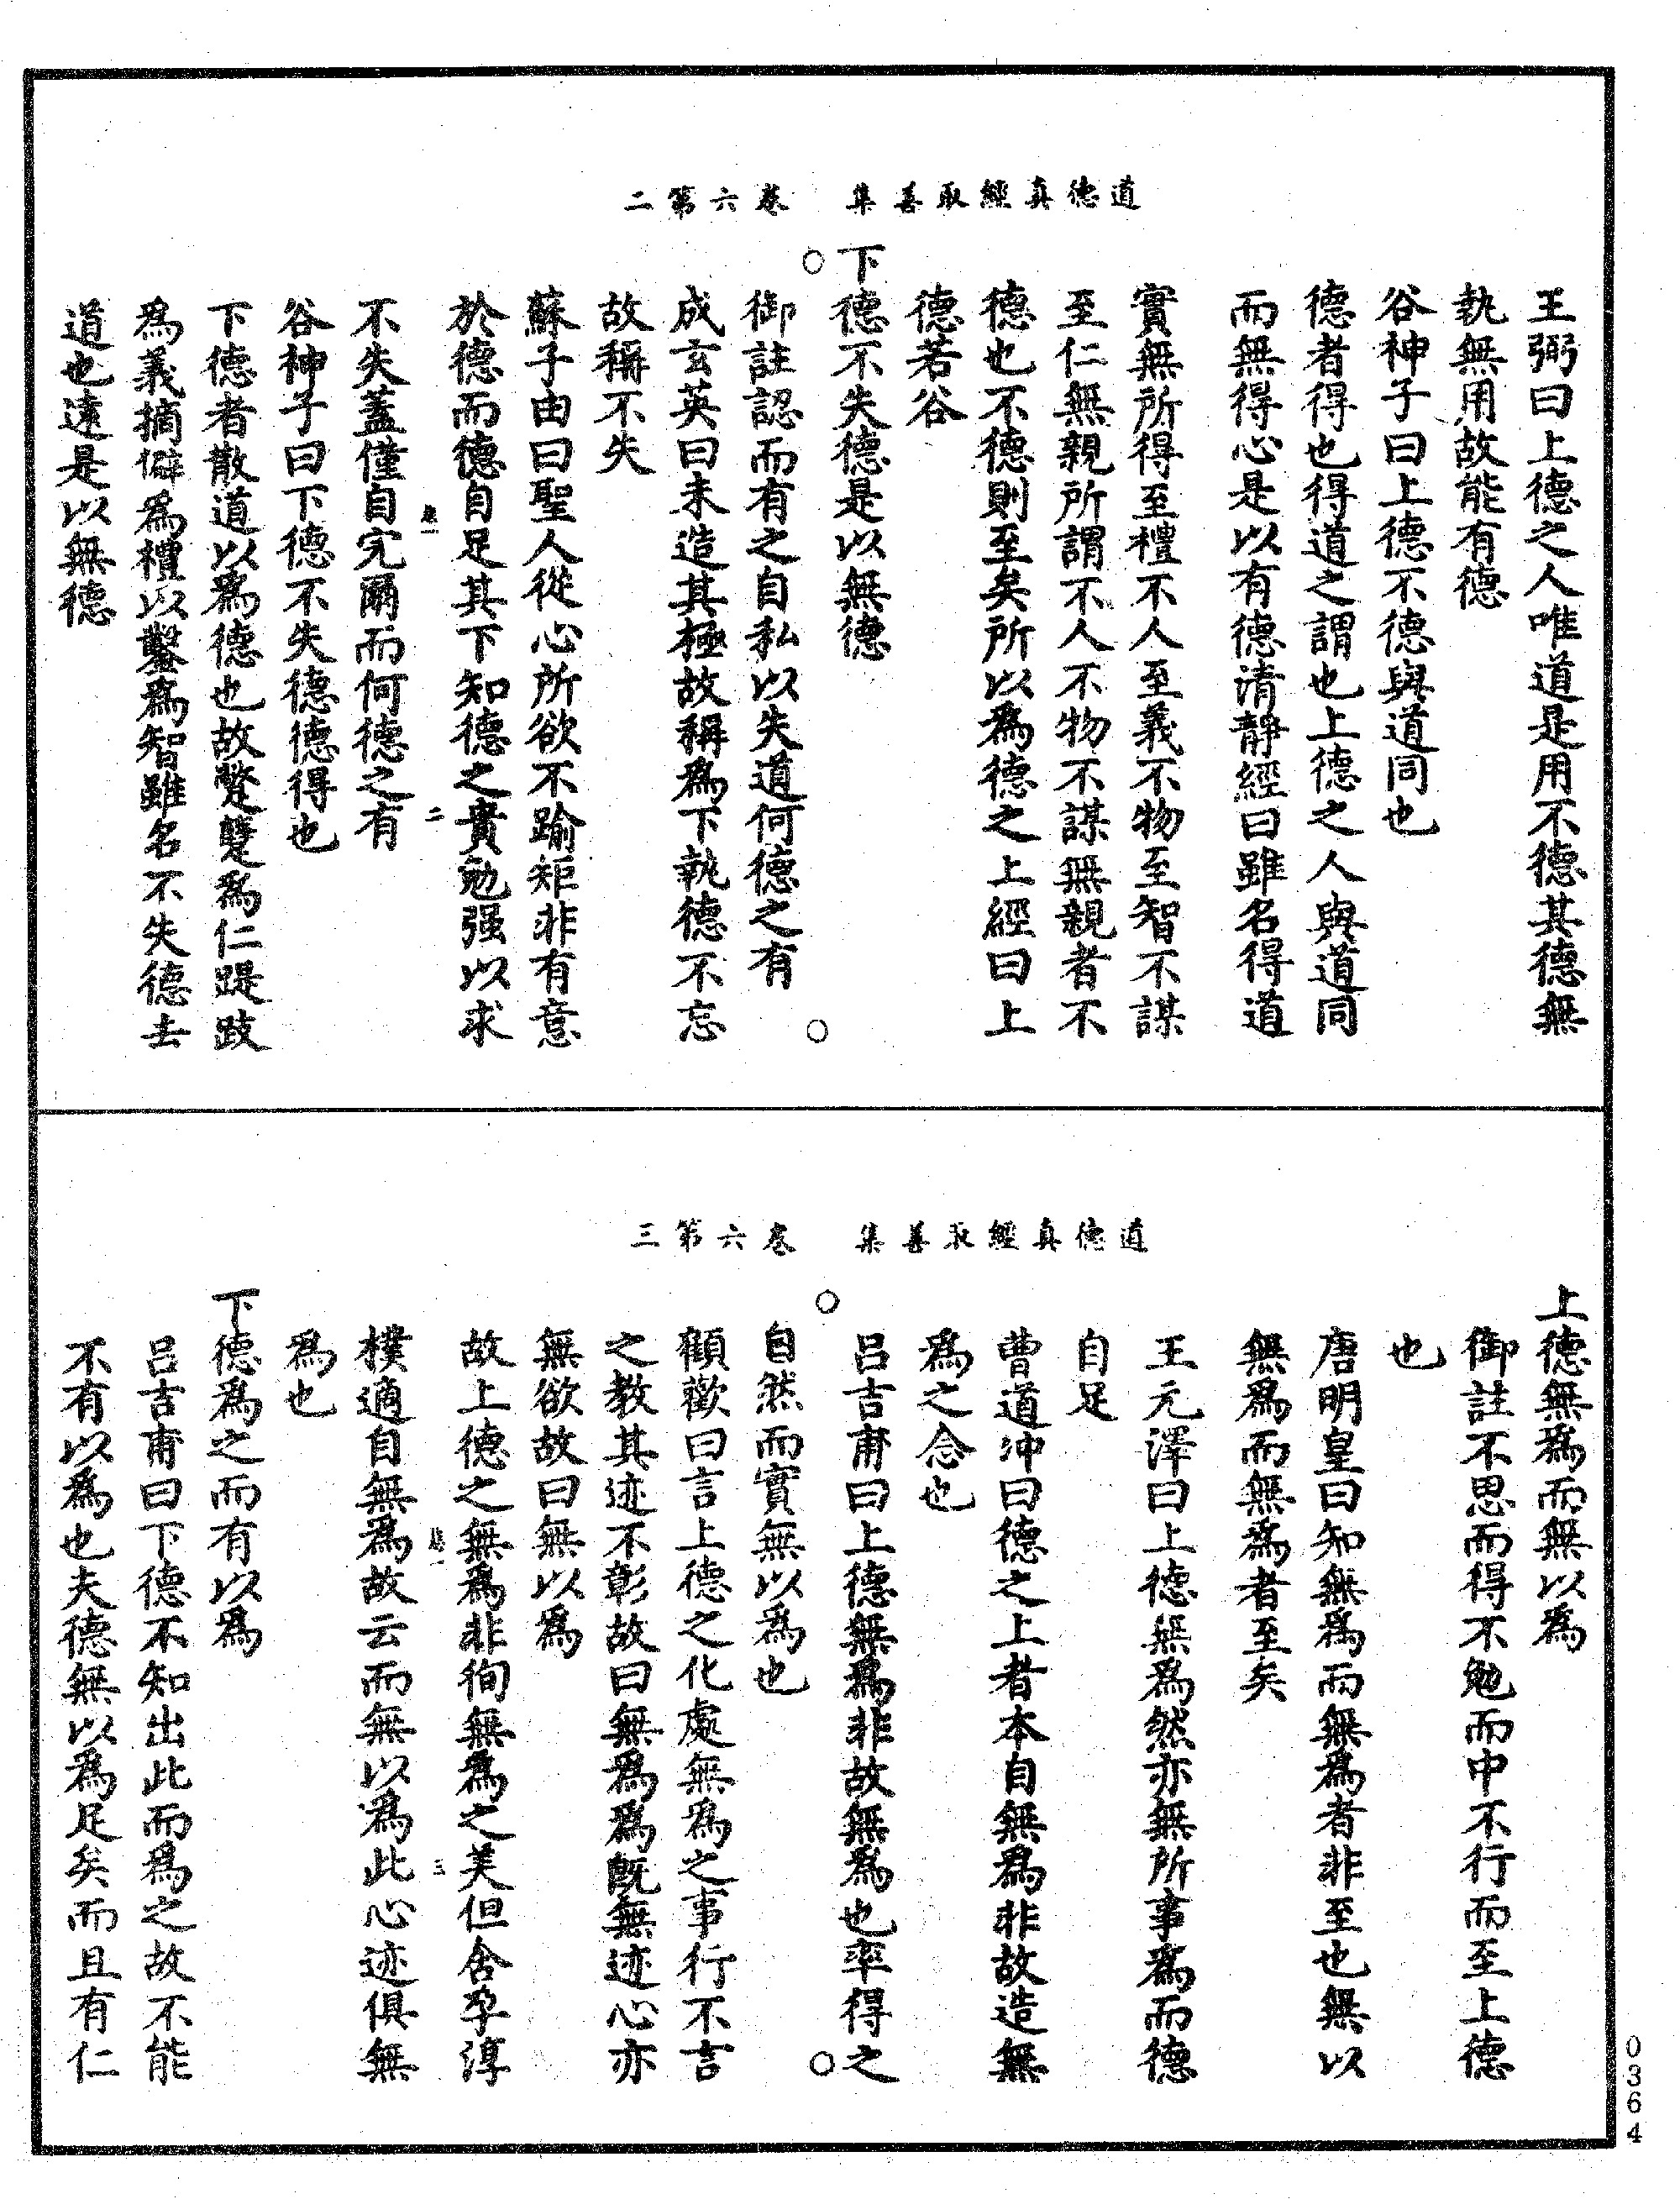 道德真經取善集　卷六第二
王弼曰上德之人唯道是用不德其德無
執無用故能有德
谷神子曰上德不德與道同也
德者得也得道之謂也上德之人與道同
而無得心是以有德清靜經曰雖名得道
實無所得至禮不人至義不物至智不謀
至仁無親所謂不人不物不謀無親者不
德也不德則至矣所以為德之上經曰上
德若谷
下德不失德是以無德
御註認而有之自私以失道何德之有
成玄英曰未造其極故稱為下執德不忘
故稱不失
蘇子由曰聖人從心所欲不踰矩非有意
於德而德自足其下知德之貴勉强以求
二
不失蓋僅自完爾而何德之有
谷神子曰下德不失德德得也
下德者散道以為德也故蹩躠為仁踶跂
為義摘僻為禮以鑿為智雖名不失德去
道也遠是以無德
道德真經取善集　卷六第三
上德無為而無以為
御註不思而得不勉而中不行而至上德
也
唐明皇曰知無為而無為者非至也無以
無為而無為者至矣
王元澤曰上德無為然亦無所事為而德
自足
曹道沖曰德之上者本自無為非故造無
為之念也
呂吉甫曰上德無為非故無為也率得之
自然而實無以為也
顧歡曰言上德之化處無為之事行不言
之教其迹不彰故曰無為為既無迹心亦
無欲故曰無以為
故上德之無為非徇無為之美但含孕淳
三
樸適自無為故云而無以為此心迹俱無
為也
下德為之而有以為
呂吉甫曰下德不知出此而為之故不能
不有以為也夫德無以為足矣而且有仁
0364